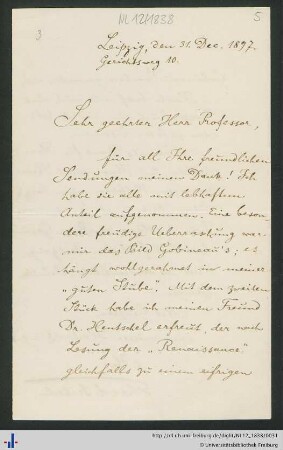 NL 12/1838
3
5
Leipzig, den 31. Dec. 1897.
Gerichtsweg 10.
Sehr geehrter Herr Professor,
für all Ihre freundlichen
Sendungen meinen Dank! Ich
habe sie alle mit lebhaftem
Anteil aufgenommen. Eine beson-
dere freudige Ueberraschung war
mir das Bild Gobineau's; es
hängt wohlgerahmt in meiner
„guten Stube". Mit dem zweiten
Stück habe ich meinen Freund
Dr. Hentschel erfreut, der nach
Lesung der „Renaissance"
gleichfalls zu einem eifrigen
Universitätsbibliothek Freiburg